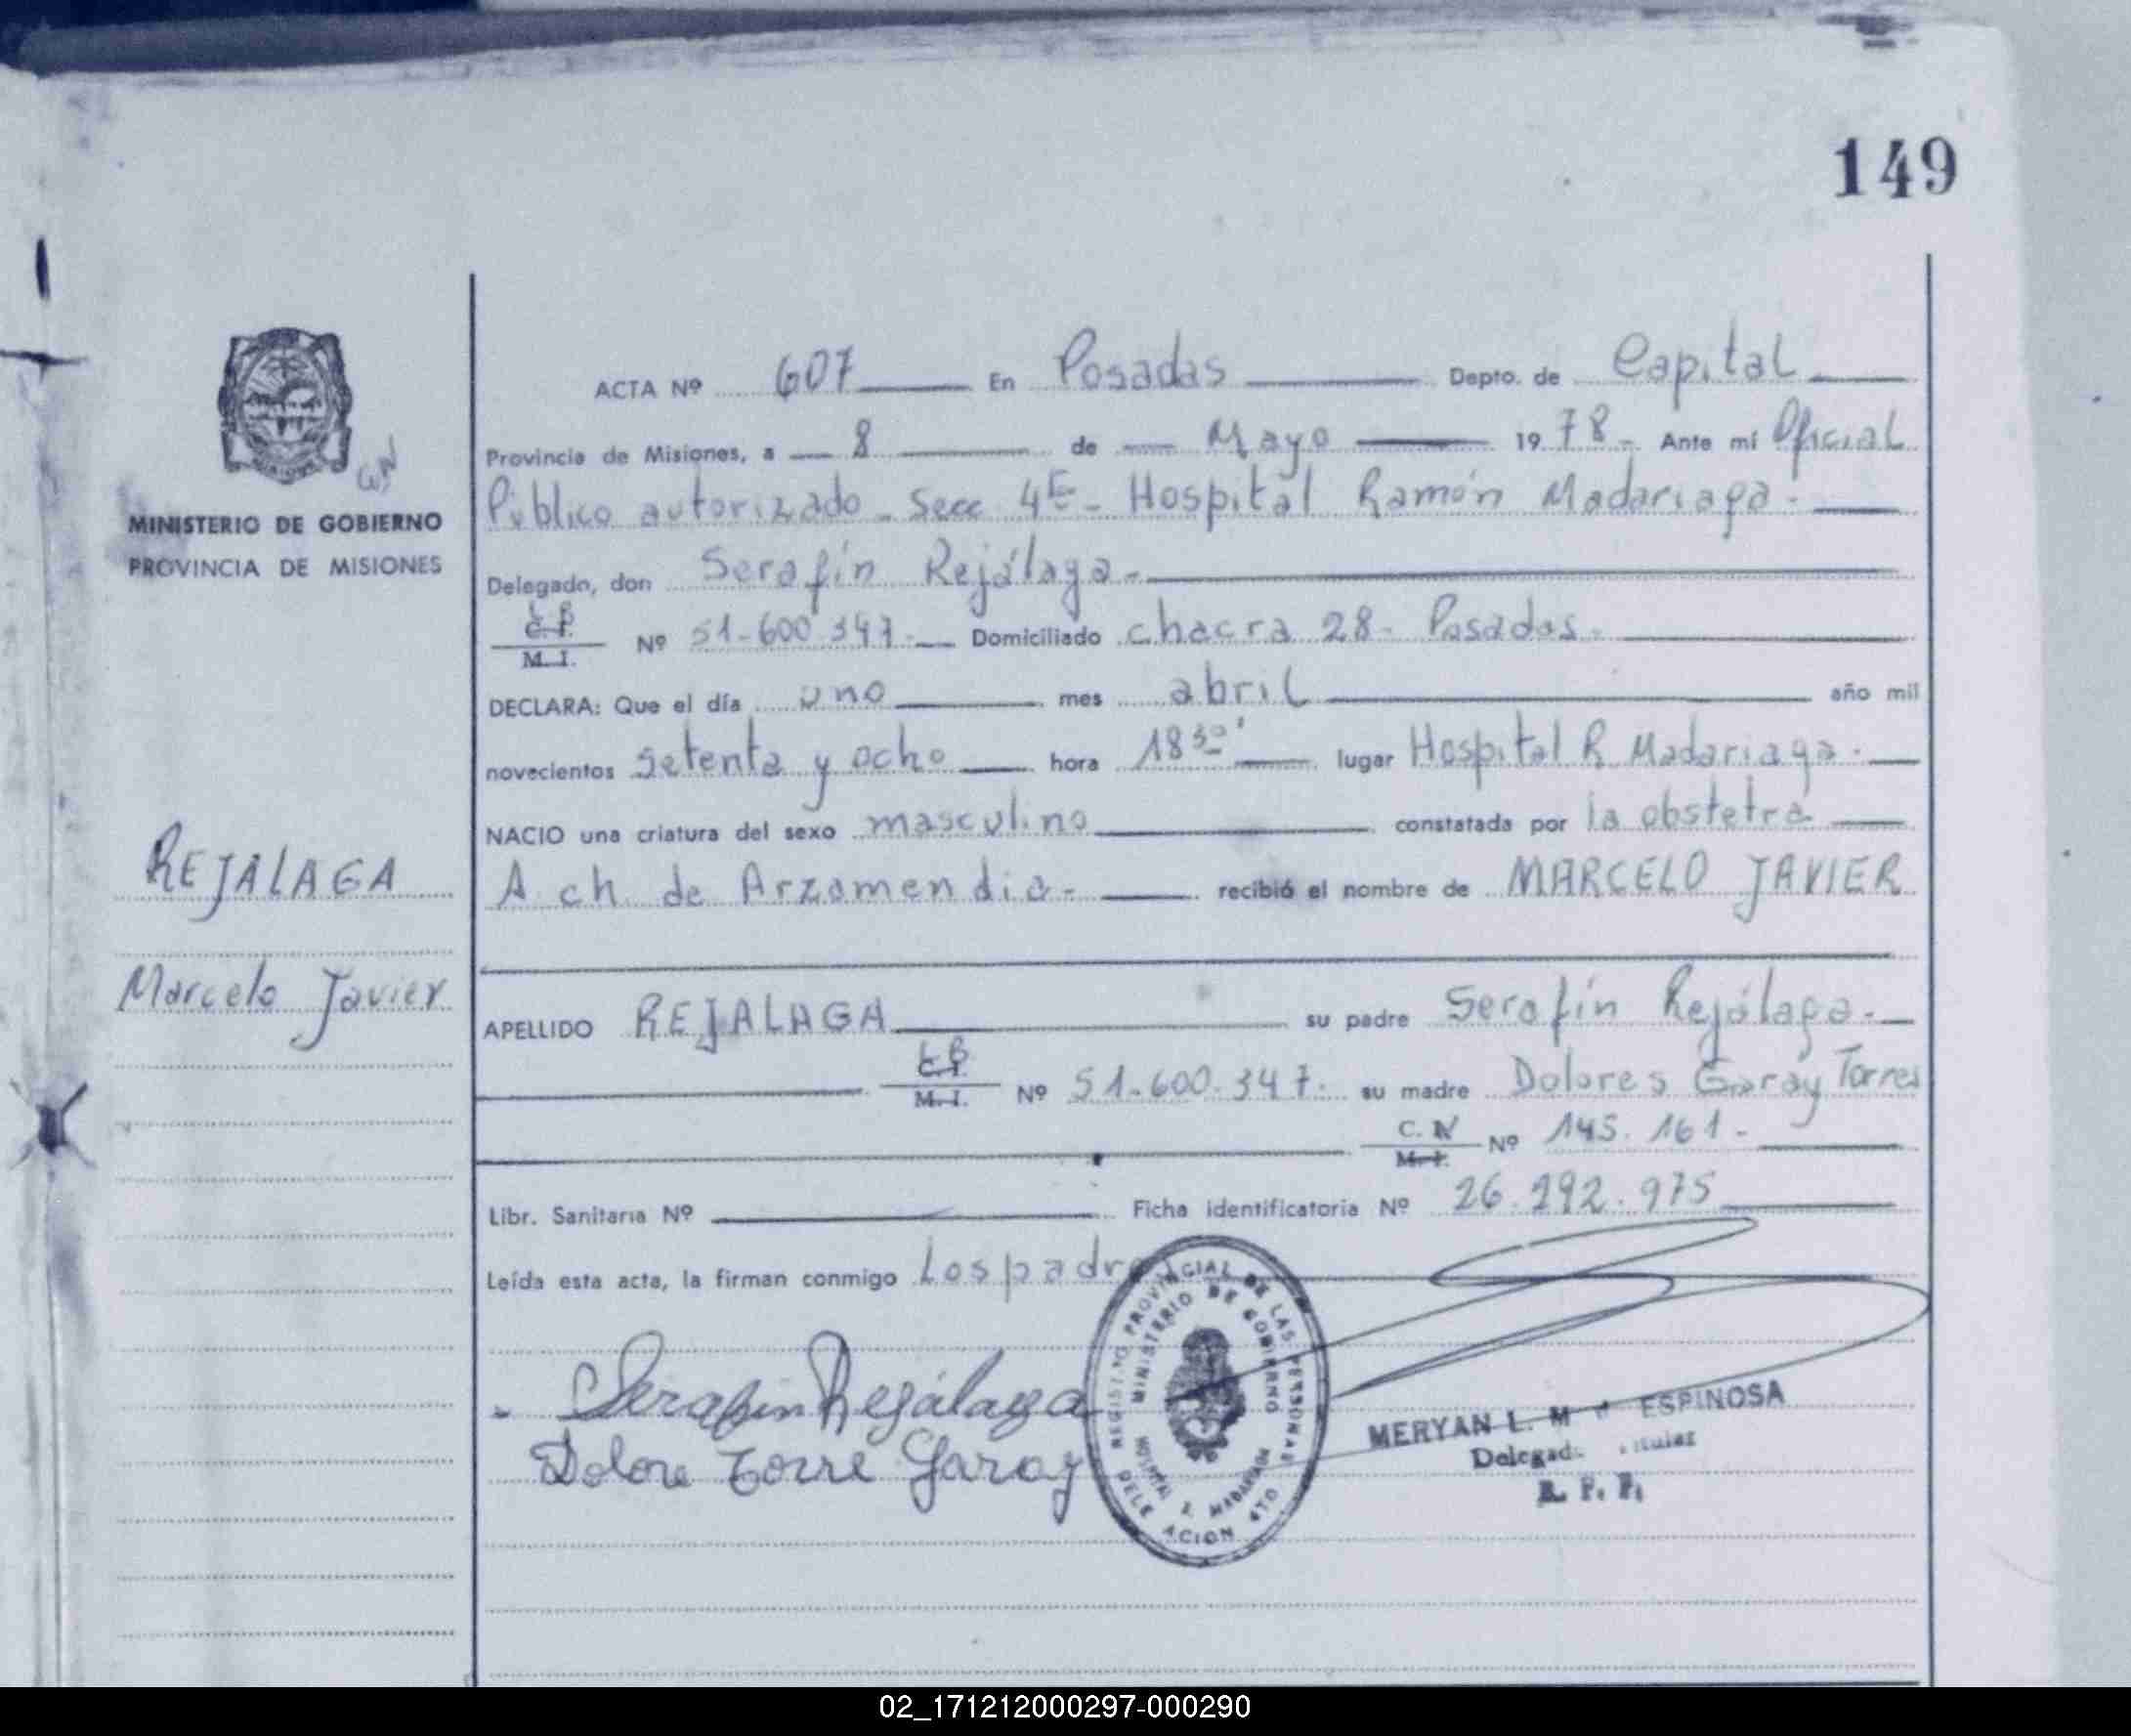 149
ACTA Nº 607 En Posadas Depto. de Capital
Provincia de Misiones, a 8 de Mayo 1978- Ante mí Oficial
Público autorizado - Secc 4E- Hospital Ramón Madariaga.
MINISTERIO DE GOBIERNO
PROVINCIA DE MISIONES
Delegado, don Serafín Rejálaga-
L B
C. I.
M. I. Nº 51-600.347.- Domiciliado chacra 28- Posadas-
DECLARA: Que el día uno mes abril año mil
novecientos setenta y ocho hora 18 30' lugar Hospital R. Madariaga.
NACIO una criatura del sexo masculino constatada por la obstetra
A ch. de Arzamendia- recibió el nombre de MARCELO JAVIER
REJALAGA
Marcelo Javier
APELLIDO REJALAGA su padre Serafín Rejálaga-
L B
C. I.
M. I. Nº 51-600.347- su madre Dolores Garay Torres
C. N
M. I. Nº 145.161-
Libr. Sanitaria Nº Ficha identificatoria Nº 26.292.975
Leída esta acta, la firman conmigo Los padre
REGISTRO PROVINCIAL DE LAS PERSONAS
MINISTERIO DE GOBIERNO
HOSPITAL R. MADARIAGA
DELE ACION 4TO
Serafin Rejálaga
Dolore torre Garay
MERYAN L. M ESPINOSA
Delegad Titular
R. P. P.
02_171212000297-000290